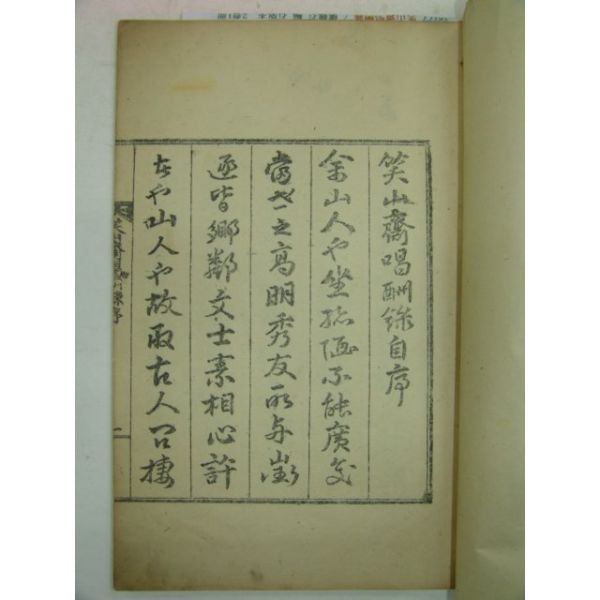 笑山齋唱酬錄自序
余山人也坐於陋不能廣交
當世之高明秀友所与
逐皆鄉鄰文士素相心許
者也山人也故取古人問棲
笑山齋唱酬錄序
一